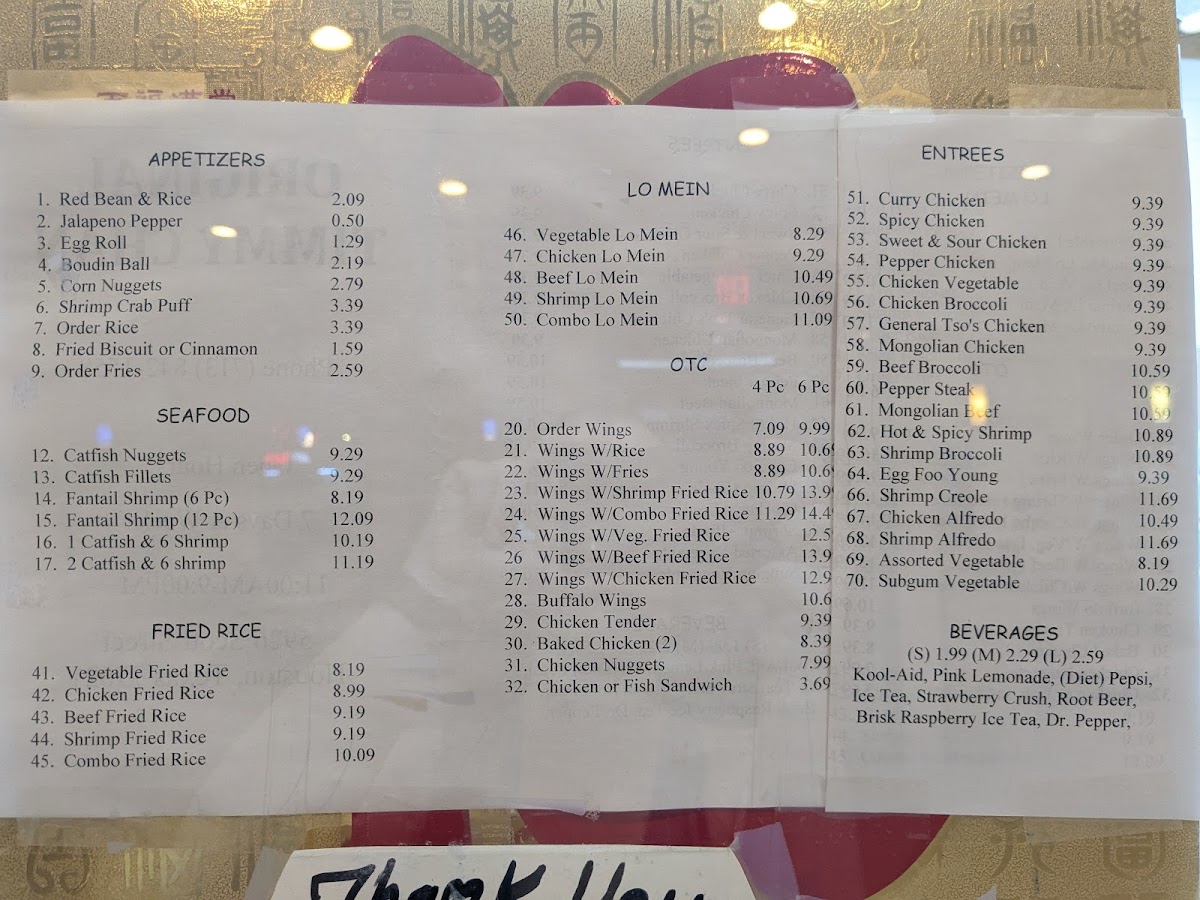 APPETIZERS
1. Red Bean & Rice 2.09
2. Jalapeno Pepper 0.50
3. Egg Roll 1.29
4. Boudin Ball 2.19
5. Corn Nuggets 2.79
6. Shrimp Crab Puff 3.39
7. Order Rice 3.39
8. Fried Biscuit or Cinnamon 1.59
9. Order Fries 2.59
SEAFOOD
12. Catfish Nuggets 9.29
13. Catfish Fillets 9.29
14. Fantail Shrimp (6 Pc) 8.19
15. Fantail Shrimp (12 Pc) 12.09
16. 1 Catfish & 6 Shrimp 10.19
17. 2 Catfish & 6 shrimp 11.19
FRIED RICE
41. Vegetable Fried Rice 8.19
42. Chicken Fried Rice 8.99
43. Beef Fried Rice 9.19
44. Shrimp Fried Rice 9.19
45. Combo Fried Rice 10.09
LO MEIN
46. Vegetable Lo Mein 8.29
47. Chicken Lo Mein 9.29
48. Beef Lo Mein 10.49
49. Shrimp Lo Mein 10.69
50. Combo Lo Mein 11.09
OTC
4 Pc 6 Pc
20. Order Wings 7.09 9.99
21. Wings W/Rice 8.89 10.6
22. Wings W/Fries 8.89 10.6
23. Wings W/Shrimp Fried Rice 10.79 13.9
24. Wings W/Combo Fried Rice 11.29 14.4
25. Wings W/Veg. Fried Rice 12.5
26 Wings W/Beef Fried Rice 13.9
27. Wings W/Chicken Fried Rice 12.9
28. Buffalo Wings 10.6
29. Chicken Tender 9.39
30. Baked Chicken (2) 8.39
31. Chicken Nuggets 7.99
32. Chicken or Fish Sandwich 3.69
ENTREES
51. Curry Chicken 9.39
52. Spicy Chicken 9.39
53. Sweet & Sour Chicken 9.39
54. Pepper Chicken 9.39
55. Chicken Vegetable 9.39
56. Chicken Broccoli 9.39
57. General Tso's Chicken 9.39
58. Mongolian Chicken 9.39
59. Beef Broccoli 10.59
60. Pepper Steak 10.59
61. Mongolian Beef 10.59
62. Hot & Spicy Shrimp 10.89
63. Shrimp Broccoli 10.89
64. Egg Foo Young 9.39
66. Shrimp Creole 11.69
67. Chicken Alfredo 10.49
68. Shrimp Alfredo 11.69
69. Assorted Vegetable 8.19
70. Subgum Vegetable 10.29
BEVERAGES
(S) 1.99 (M) 2.29 (L) 2.59
Kool-Aid, Pink Lemonade, (Diet) Pepsi,
Ice Tea, Strawberry Crush, Root Beer,
Brisk Raspberry Ice Tea, Dr. Pepper,
Thank You